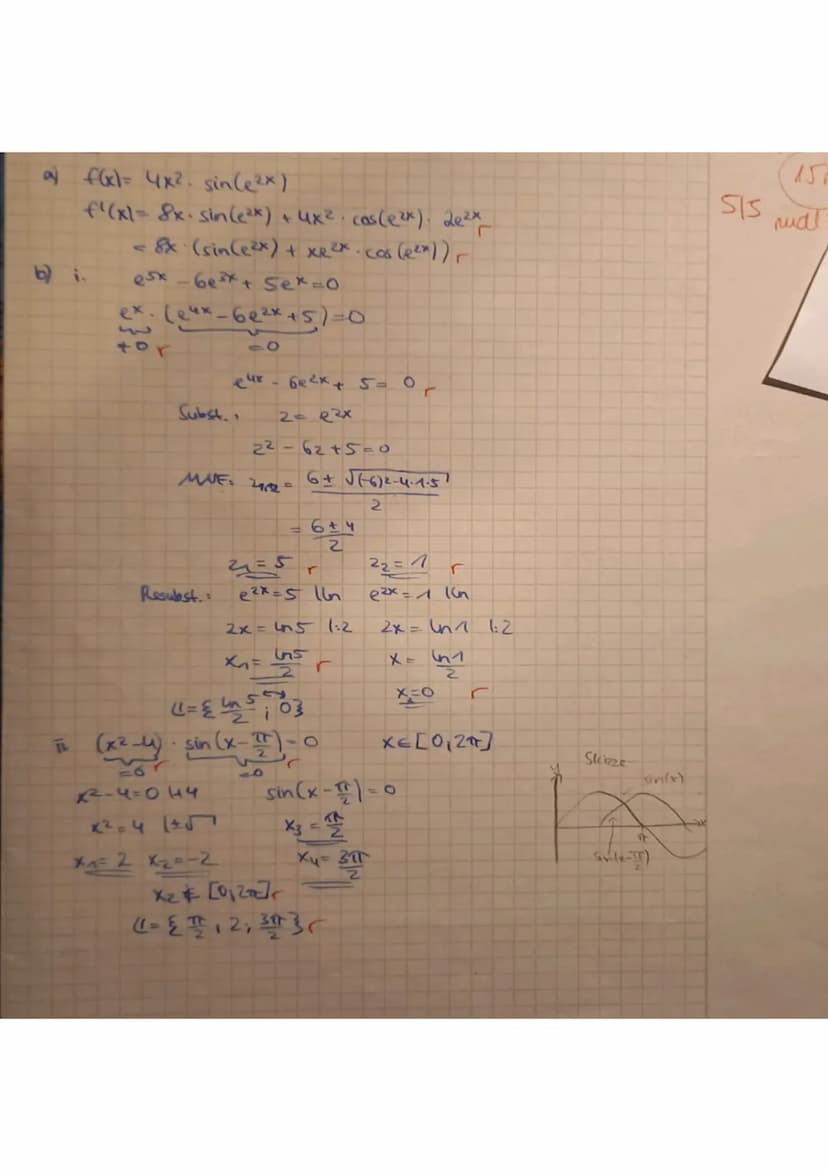 a) f(x)= 4x² · sin(e²ˣ)
f'(x)= 8x · sin(e²ˣ) + 4x² · cos(e²ˣ) · 2e²ˣ r
= 8x · (sin(e²ˣ) + xe²ˣ · cos(e²ˣ)) r
5|5
15
b) i. e⁵ˣ - 6e³ˣ + 5eˣ = 0
eˣ · (e⁴ˣ - 6e²ˣ + 5) = 0
≠0 r =0
e⁴ˣ - 6e²ˣ + 5 = 0 r
Subst.: z = e²ˣ
z² - 6z + 5 = 0
MNF: z₁/₂ = (6 ± √((-6)² - 4·1·5))/2
= (6 ± 4)/2
z₁ = 5 r z₂ = 1 r
Resubst.: e²ˣ = 5 |ln e²ˣ = 1 |ln
2x = ln5 |:2 2x = ln1 |:2
x₁ = ln5/2 r x = ln1/2
x₂=0 r
L={ln5/2 ; 0}
ii (x²-4) · sin(x - π/2) = 0 x∈[0,2π]
=0 r =0 r
x²-4=0 |+4 sin(x - π/2) = 0
x² = 4 |±√ x₃ = π/2
x₁ = 2 x₂ = -2 x₄ = 3π/2
x₂ ∉ [0,2π] r
L={π/2 ; 2 ; 3π/2} r
Skizze
y
sin(x)
x
π
sin(x-π/2)